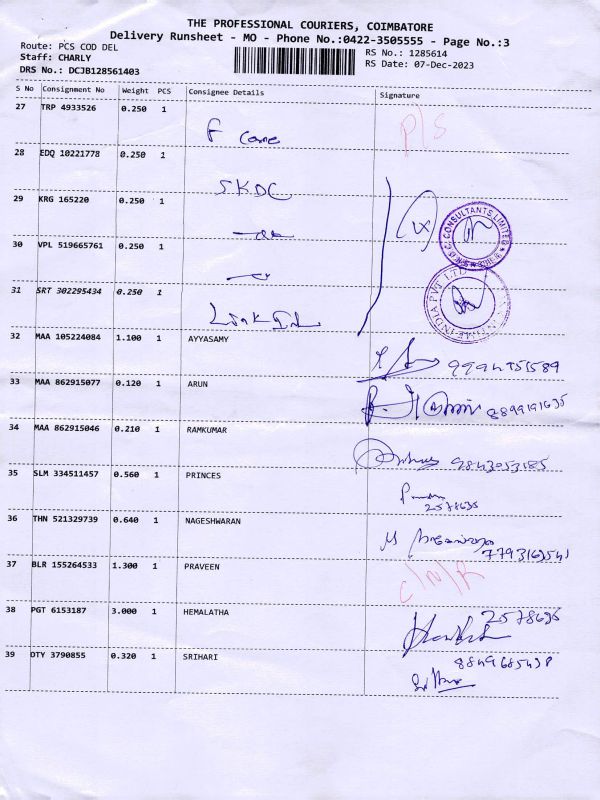 THE PROFESSIONAL COURIERS, COIMBATORE
Delivery Runsheet - MO - Phone No.:0422-3505555 - Page No.:3
Route: PCS COD DEL
RS No.: 1285614
Staff: CHARLY
RS Date: 07-Dec-2023
DRS No.: DCJB128561403
S No Consignment No Weight PCS Consignee Details Signature
27 TRP 4933526 0.250 1
P/S
28 EDQ 10221778 0.250 1
SKDC
29 KRG 165220 0.250 1
CONSULTANTS LIMITED
30 VPL 519665761 0.250 1
INDIA PVT LTD
31 SRT 302295434 0.250 1
32 MAA 105224084 1.100 1 AYYASAMY
33 MAA 862915077 0.120 1 ARUN
34 MAA 862915046 0.210 1 RAMKUMAR
9843053185
35 SLM 334511457 0.560 1 PRINCES
2578695
36 THN 521329739 0.640 1 NAGESHWARAN
37 BLR 155264533 1.300 1 PRAVEEN
C/N/R
38 PGT 6153187 3.000 1 HEMALATHA
2578695
39 OTY 3790855 0.320 1 SRIHARI